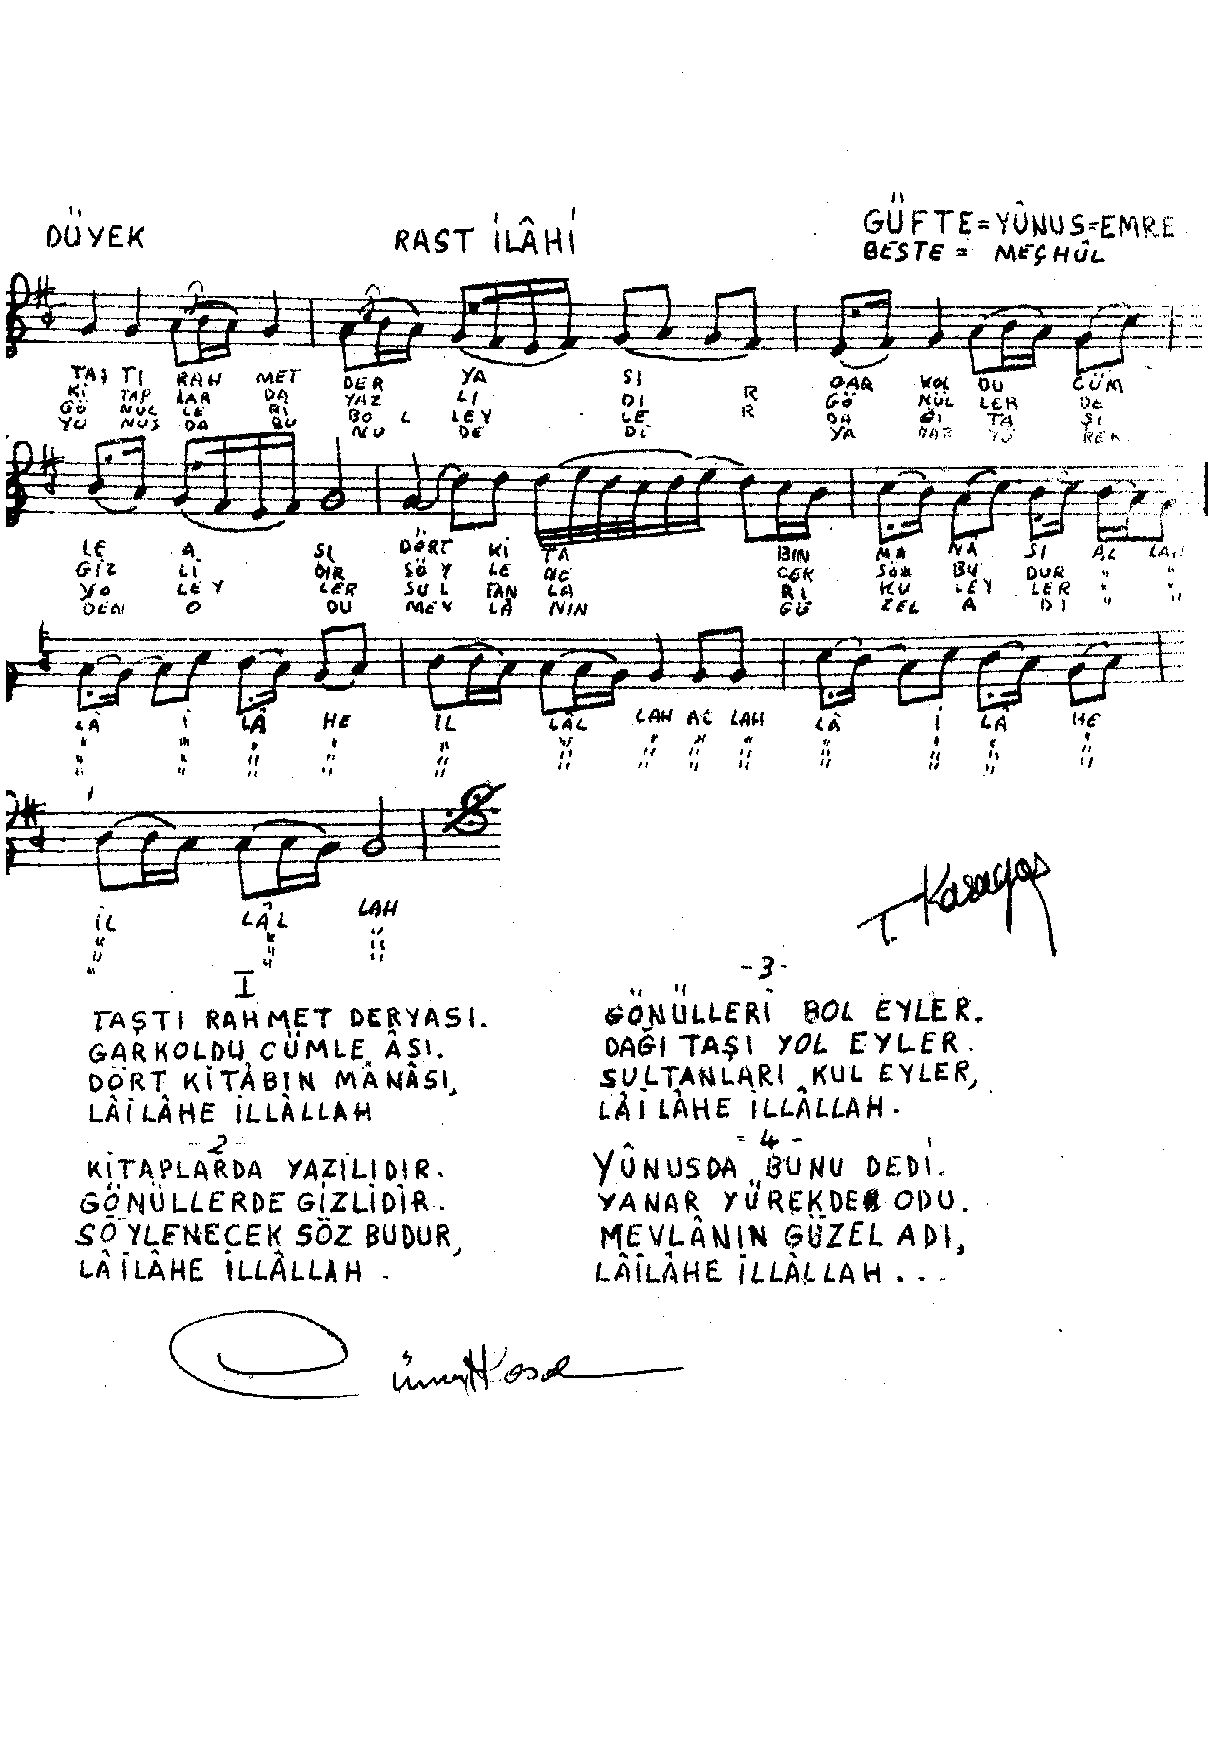 DÜYEK
RAST İLÂHİ
GÜFTE = YÛNUS = EMRE
BESTE = MEÇHÛL
TAŞ TI RAH MET DER YA SI GAR KOL DU CÜM
Kİ TAP LAR DA YAZ LI DI R GÖ NÜL LER DE
GÖ NÜL LE Rİ BO L EY LE R DA ĞI TA ŞI
YU NUS DA BU NU DE Dİ YA NAR YÜ REK
LE A SI DÖRT Kİ TA BIN MA NA SI AL LAH
GİZ Lİ DİR SÖ Y LE NE CEK SÖZ BU DUR " "
YO L EY LER SUL TAN LA RI KU L EY LER " "
DEN O DU MEV LÂ NIN GÜ ZEL A DI " "
LÂ İ LÂ HE İL LÂL LAH AL LAH LÂ İ LÂ HE
İL LÂL LAH
T. Karagöz
I
TAŞTI RAHMET DERYASI.
GARKOLDU CÜMLE ÂSI.
DÖRT KİTÂBIN MÂNÂSI,
LÂİLÂHE İLLÂLLAH
-2-
KİTAPLARDA YAZILIDIR.
GÖNÜLLERDE GİZLİDİR.
SÖYLENECEK SÖZ BUDUR,
LÂİLÂHE İLLÂLLAH .
-3-
GÖNÜLLERİ BOL EYLER.
DAĞI TAŞI YOL EYLER.
SULTANLARI KUL EYLER,
LÂİLÂHE İLLÂLLAH.
-4-
YÛNUSDA BUNU DEDİ.
YANAR YÜREKDEN ODU.
MEVLÂNIN GÜZEL ADI,
LÂİLÂHE İLLÂLLAH...